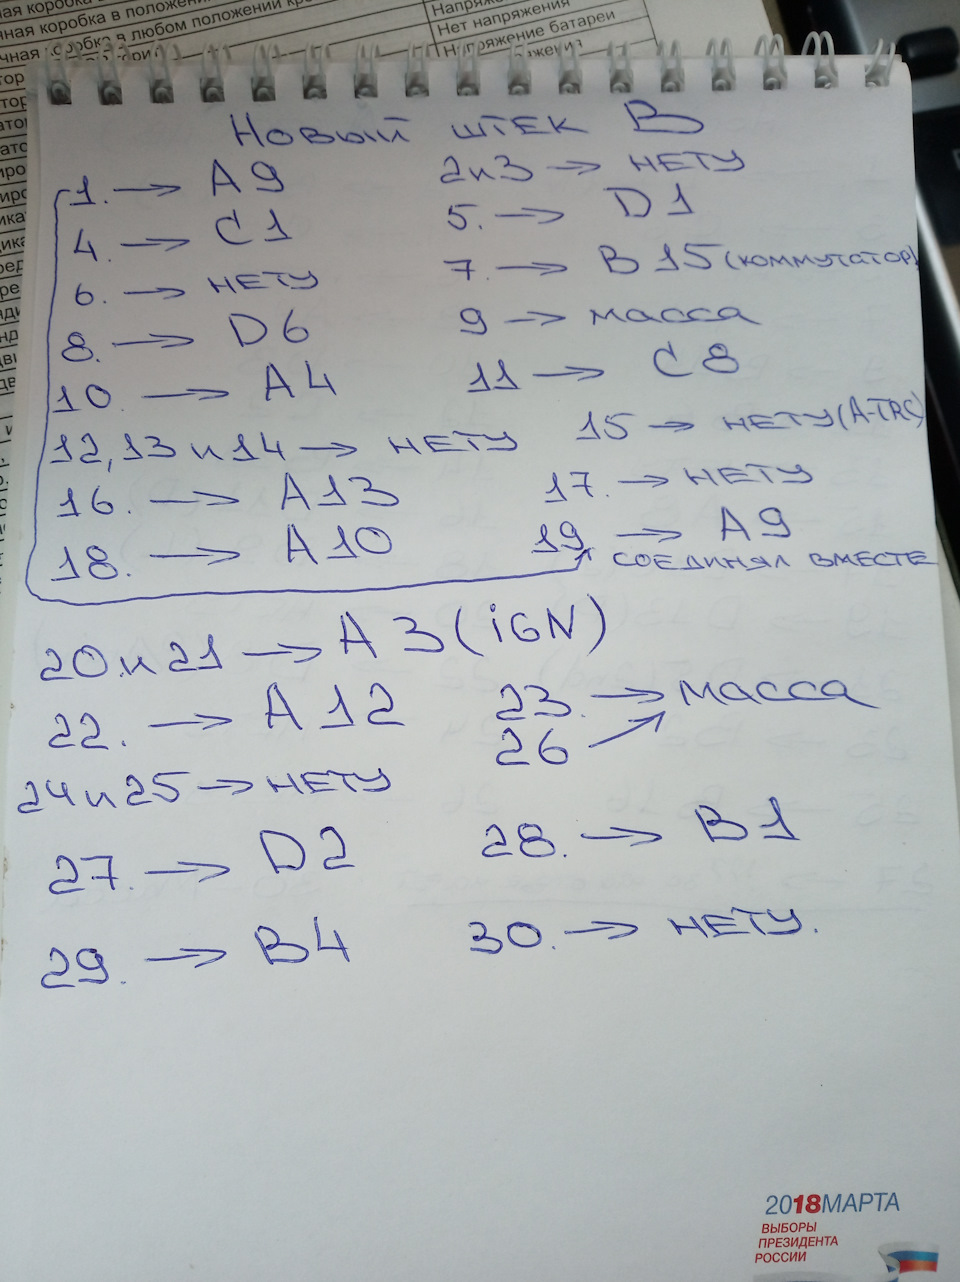 ная коробка в положени
чная коробка в любом положении кро
Напряже
Нет напряжения
Напряжение батареи
Новый штек B
1. → A9 2и3 → нету
4. → C1 5. → D1
6. → нету 7. → B15 (коммутатор)
8. → D6 9 → масса
10. → A4 11 → C8
12, 13 и 14 → нету 15 → нету (A-TRC)
16. → A13 17. → нету
18. → A10 19 → A9
соединял вместе
20 и 21 → A3 (iGN)
22. → A12 23. → масса
26
24 и 25 → нету
27. → D2 28. → B1
29. → B4 30. → нету.
2018МАРТА
ВЫБОРЫ
ПРЕЗИДЕНТА
РОССИИ